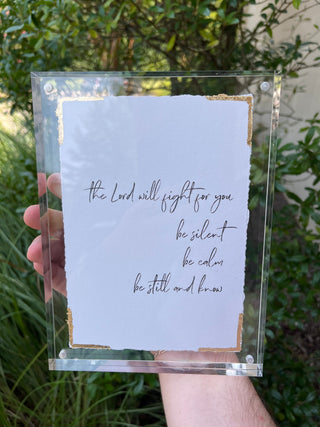 the Lord will fight for you
be silent
be calm
be still and know